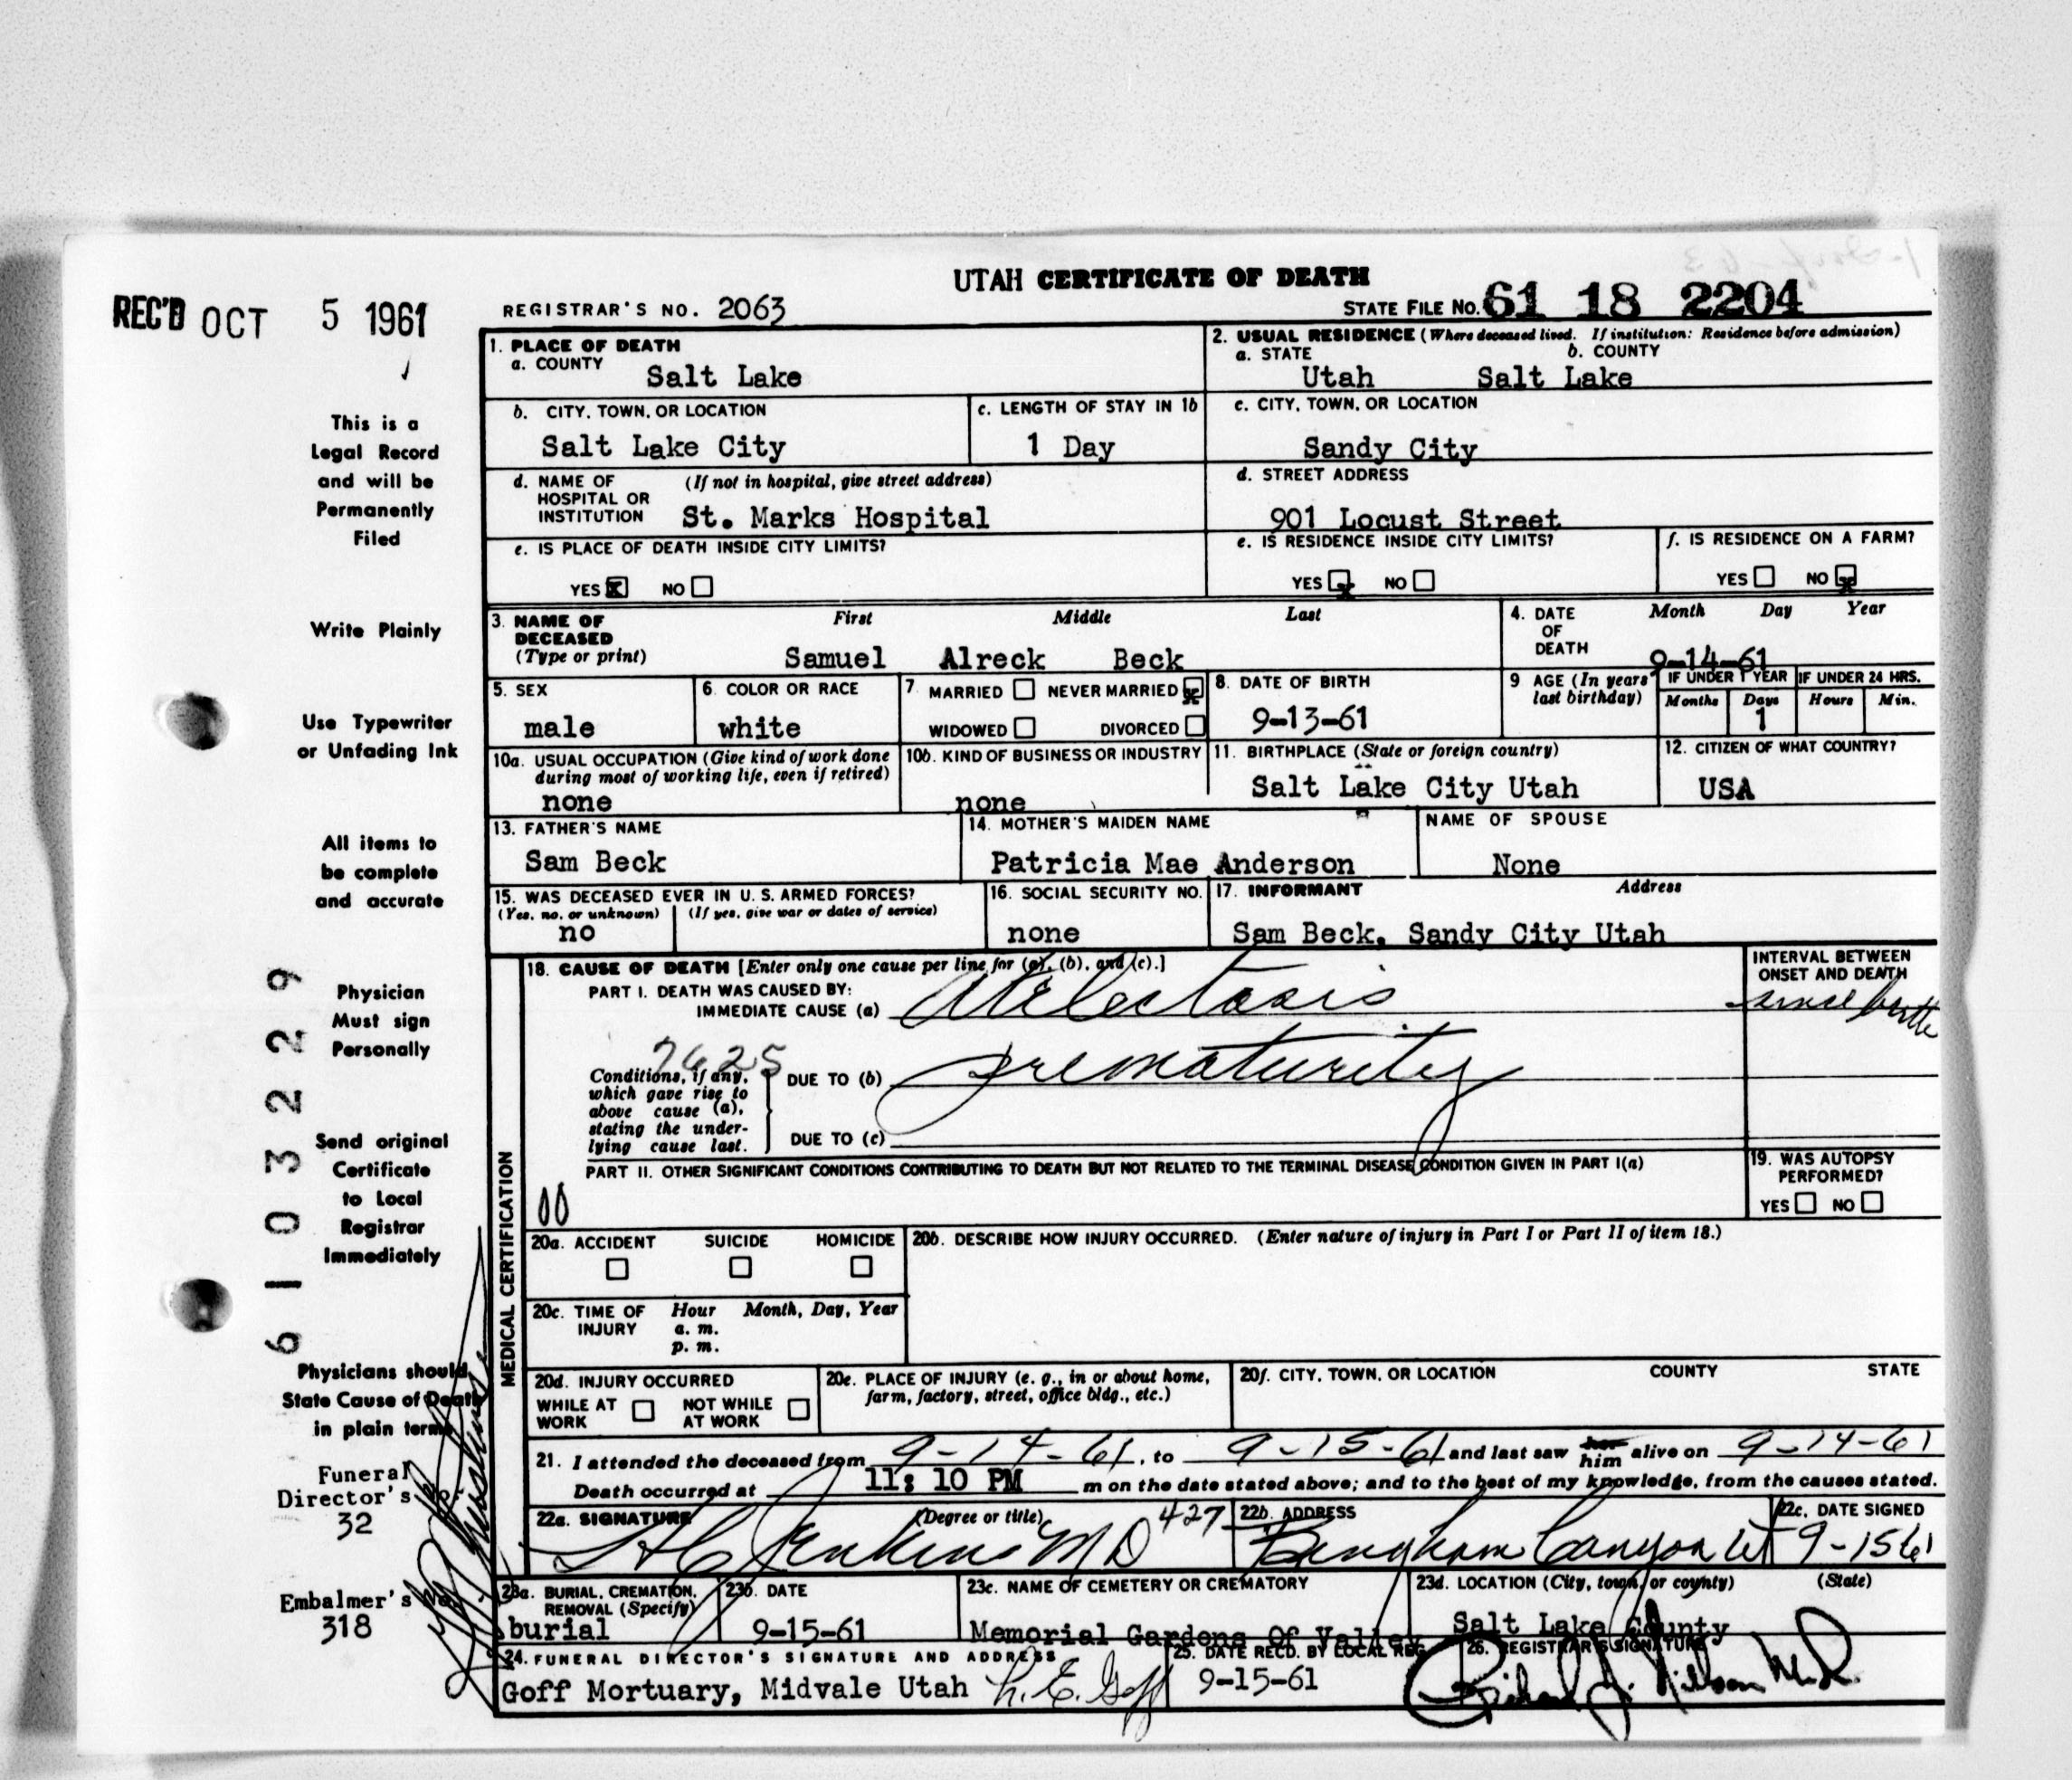 UTAH CERTIFICATE OF DEATH
REC'D OCT 5 1961
REGISTRAR'S NO. 2063
STATE FILE NO. 61 18 2204
This is a
Legal Record
and will be
Permanently
Filed
Write Plainly
Use Typewriter
or Unfading Ink
All items to
be complete
and accurate
Physician
Must sign
Personally
Send original
Certificate
to Local
Registrar
Immediately
Physicians should
State Cause of Death
in plain terms
Funeral
Director's
32
Embalmer's
318
61 03229
1. PLACE OF DEATH
a. COUNTY
Salt Lake
2. USUAL RESIDENCE (Where deceased lived. If institution: Residence before admission)
a. STATE b. COUNTY
Utah Salt Lake
b. CITY, TOWN, OR LOCATION
Salt Lake City
c. LENGTH OF STAY IN 1b
1 Day
c. CITY, TOWN, OR LOCATION
Sandy City
d. NAME OF (If not in hospital, give street address)
HOSPITAL OR
INSTITUTION St. Marks Hospital
d. STREET ADDRESS
901 Locust Street
e. IS PLACE OF DEATH INSIDE CITY LIMITS?
YES X NO
e. IS RESIDENCE INSIDE CITY LIMITS?
YES x NO
f. IS RESIDENCE ON A FARM?
YES NO x
3. NAME OF First Middle Last
DECEASED
(Type or print) Samuel Alreck Beck
4. DATE Month Day Year
OF
DEATH 9-14-61
5. SEX
male
6. COLOR OR RACE
white
7. MARRIED NEVER MARRIED x
WIDOWED DIVORCED
8. DATE OF BIRTH
9-13-61
9 AGE (In years
last birthday)
IF UNDER 1 YEAR
Months Days
1
IF UNDER 24 HRS.
Hours Min.
10a. USUAL OCCUPATION (Give kind of work done
during most of working life, even if retired)
none
10b. KIND OF BUSINESS OR INDUSTRY
none
11. BIRTHPLACE (State or foreign country)
Salt Lake City Utah
12. CITIZEN OF WHAT COUNTRY?
USA
13. FATHER'S NAME
Sam Beck
14. MOTHER'S MAIDEN NAME
Patricia Mae Anderson
NAME OF SPOUSE
None
15. WAS DECEASED EVER IN U. S. ARMED FORCES?
(Yes, no, or unknown) (If yes, give war or dates of service)
no
16. SOCIAL SECURITY NO.
none
17. INFORMANT Address
Sam Beck, Sandy City Utah
MEDICAL CERTIFICATION
18. CAUSE OF DEATH [Enter only one cause per line for (a), (b), and (c).]
PART I. DEATH WAS CAUSED BY:
IMMEDIATE CAUSE (a) Atelectasis
INTERVAL BETWEEN
ONSET AND DEATH
since birth
7625
Conditions, if any,
which gave rise to
above cause (a),
stating the under-
lying cause last.
DUE TO (b) prematurity
DUE TO (c)
PART II. OTHER SIGNIFICANT CONDITIONS CONTRIBUTING TO DEATH BUT NOT RELATED TO THE TERMINAL DISEASE CONDITION GIVEN IN PART I(a)
19. WAS AUTOPSY
PERFORMED?
YES NO
20a. ACCIDENT SUICIDE HOMICIDE
20b. DESCRIBE HOW INJURY OCCURRED. (Enter nature of injury in Part I or Part II of item 18.)
20c. TIME OF Hour Month, Day, Year
INJURY a. m.
p. m.
20d. INJURY OCCURRED
WHILE AT NOT WHILE
WORK AT WORK
20e. PLACE OF INJURY (e. g., in or about home,
farm, factory, street, office bldg., etc.)
20f. CITY, TOWN, OR LOCATION COUNTY STATE
21. I attended the deceased from 9-14-61, to 9-15-61 and last saw her him alive on 9-14-61
Death occurred at 11:10 PM m on the date stated above; and to the best of my knowledge, from the causes stated.
22a. SIGNATURE (Degree or title) 427
Jenkins MD
22b. ADDRESS
Bingham Canyon Ut
22c. DATE SIGNED
9-15 61
23a. BURIAL, CREMATION,
REMOVAL (Specify)
burial
23b. DATE
9-15-61
23c. NAME OF CEMETERY OR CREMATORY
Memorial Gardens Of Valley
23d. LOCATION (City, town, or county) (State)
Salt Lake County
24. FUNERAL DIRECTOR'S SIGNATURE AND ADDRESS
Goff Mortuary, Midvale Utah
25. DATE RECD. BY LOCAL REG.
9-15-61
26. REGISTRAR'S SIGNATURE